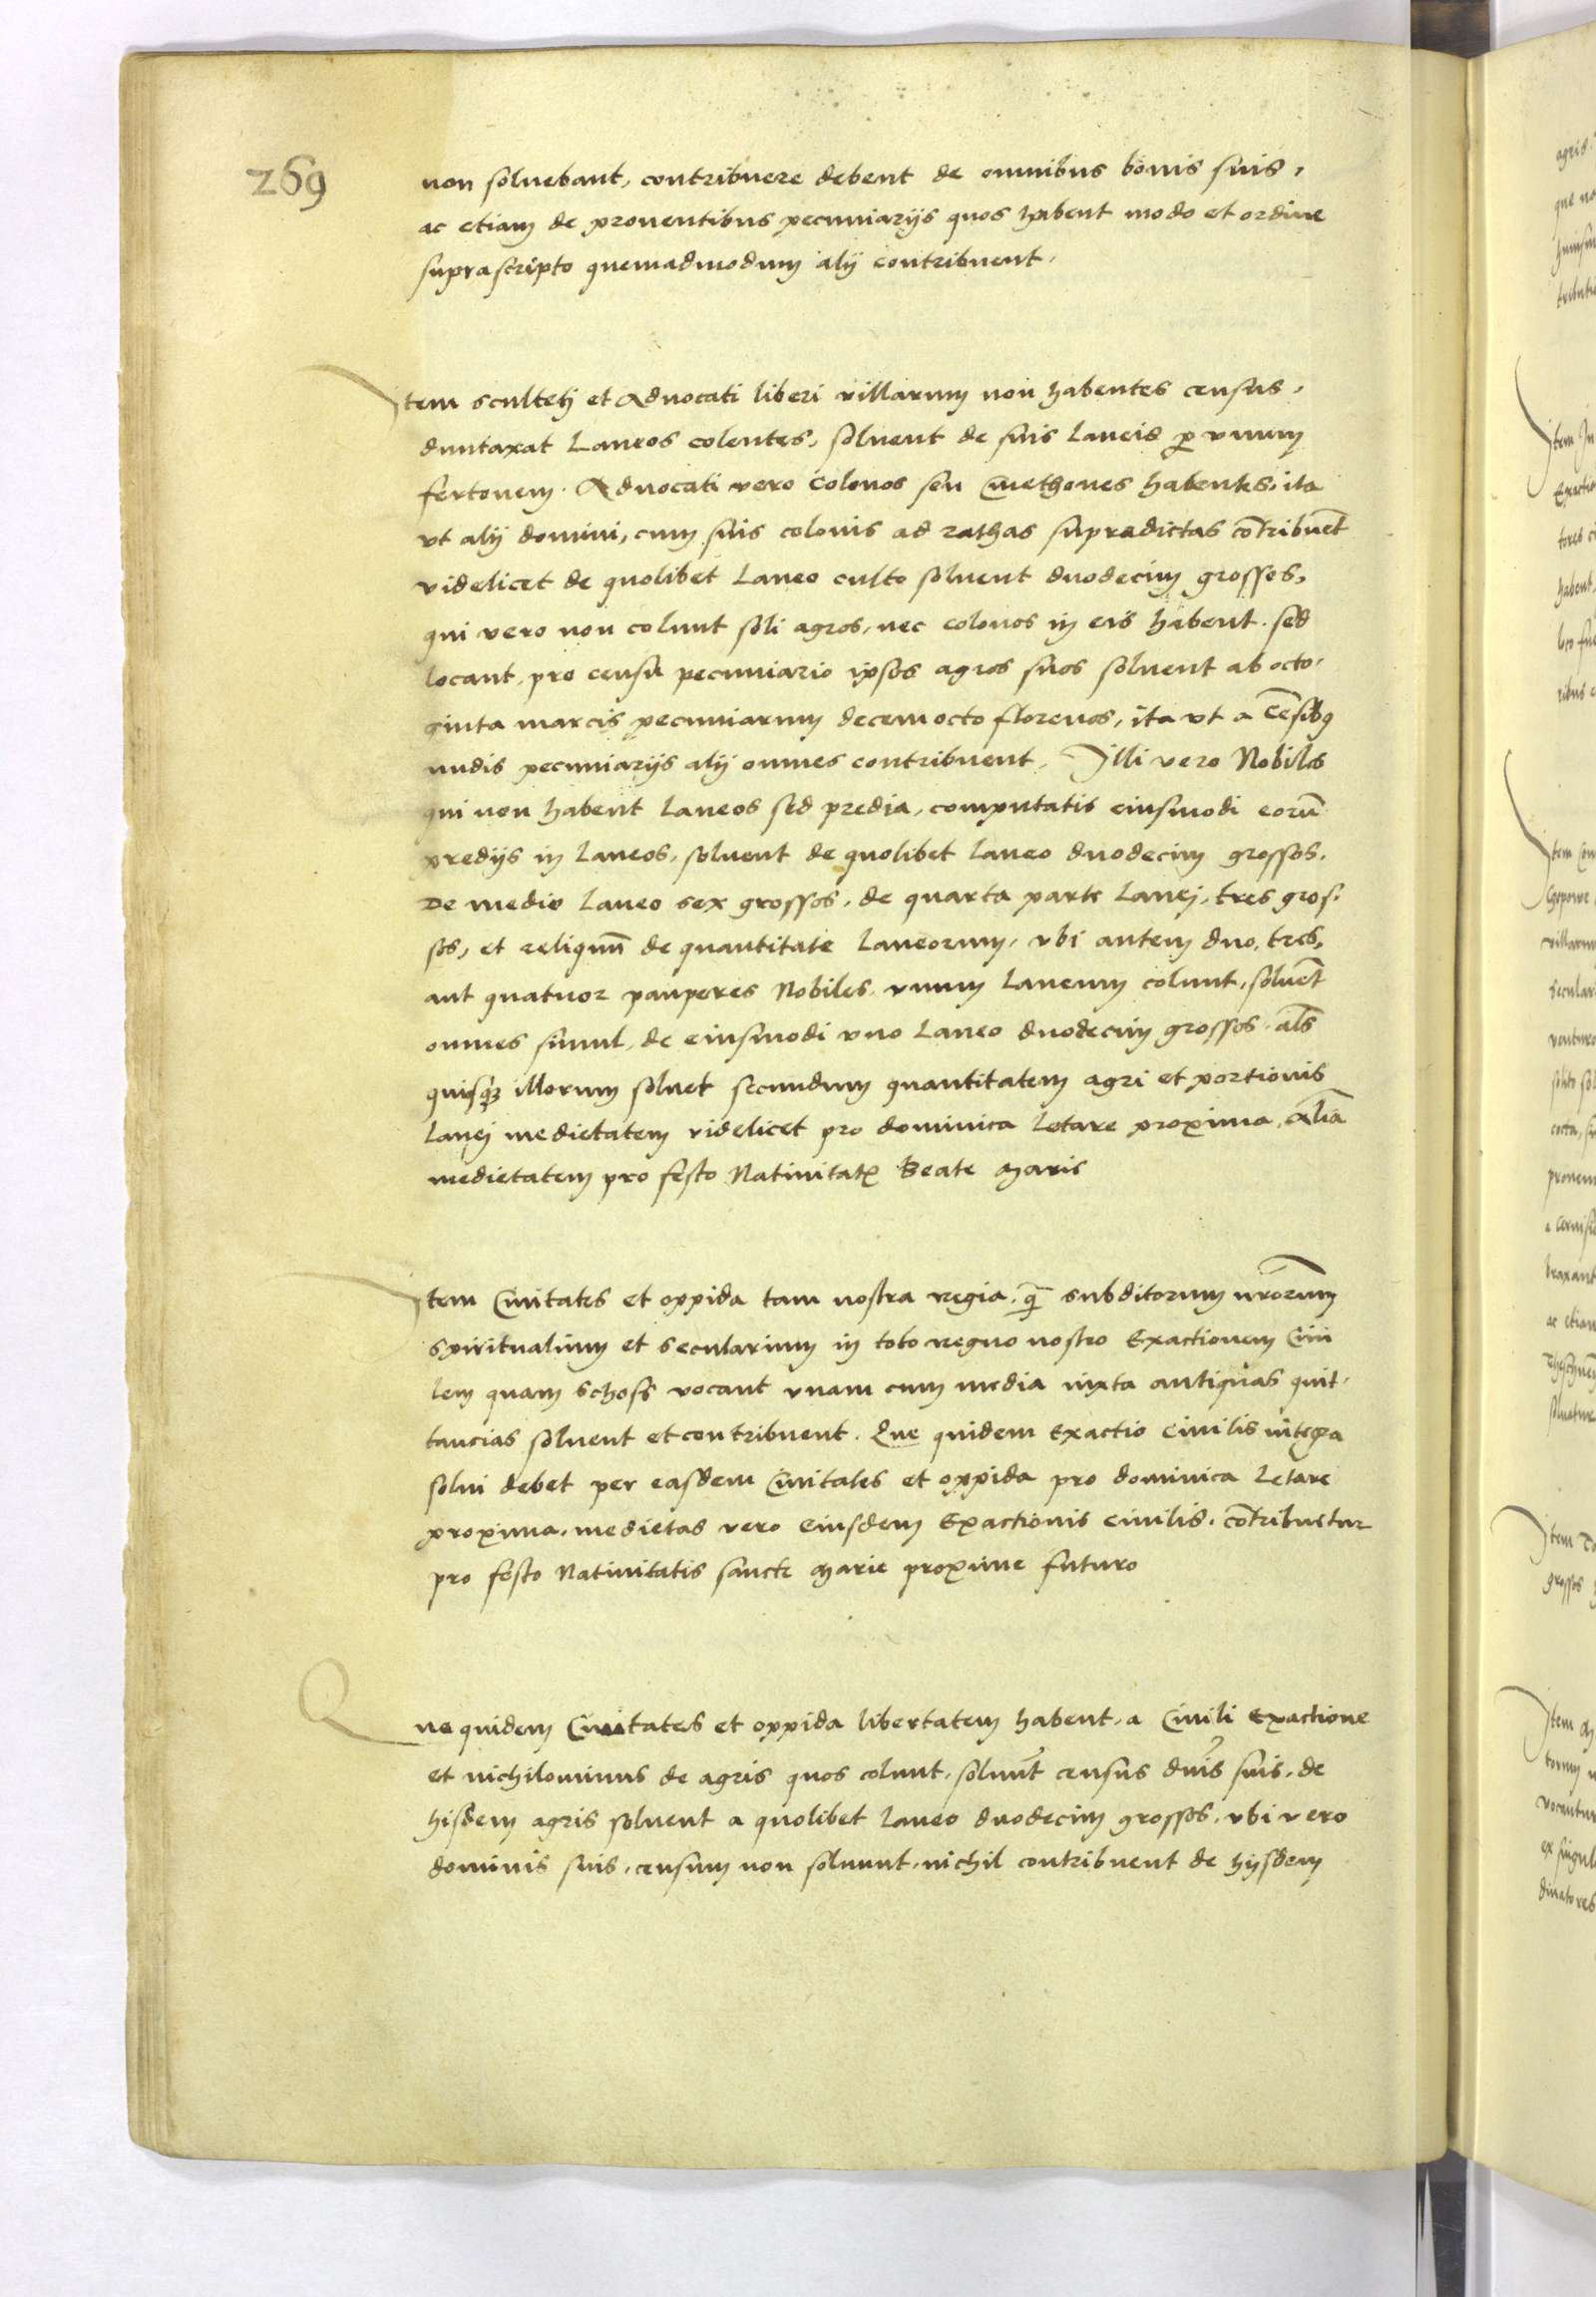 269
non soluebant, contribuere debent de omnibus bonis suis,
ac etiam de prouentibus pecuniarijs quos habent modo et ordine
suprascripto quemadmodum alij contribuent.
Item sculteti et Aduocati liberi villarum non habentes census,
duntaxat Laneos colentes, soluent de suis Laneis p̱ vnum
fertonem. Aduocati vero colonos seu Cmethones habentes, ita
vt alij domini, cum suis colonis ad rathas supradictas cōtribuēt
videlicet de quolibet Laneo culto soluent duodecim grossos,
qui vero non colunt soli agros, nec colonos in eis habent. sed
locant, pro censu pecuniario ipsos agros suos soluent ab octo-
ginta marcis pecuniarum decem octo florenos, ita vt a cēsibꝰ
nudis pecuniarijs alij omnes contribuent. Illi vero Nobiles
qui non habent Laneos sed predia, computatis eiusmodi eorū
predijs in Laneos, soluent de quolibet Laneo duodecim grossos.
De medio Laneo sex grossos, de quarta parte Lanej, tres gros-
sos, et reliquū de quantitate Laneorum, vbi autem duo, tres,
aut quatuor pauperes Nobiles, vnum Laneum colunt, soluēt
omnes simul, de eiusmodi vno Laneo duodecim grossos, als̄
quisqꝫ illorum soluet secundum quantitatem agri et portionis
Lanej medietatem videlicet pro dominica Letare proxima, aliā
medietatem pro festo Natiuitatꝭ Beate Marie
Item Ciuitates et oppida tam nostra regia, q̄ subditorum nr̄orum
spiritualium et secularium in toto regno nostro Exactionem Ciui
lem quam schoss vocant vnam cum media iuxta antiquas quit-
tancias soluent et contribuent. Que quidem Exactio ciuilis integra
solui debet per easdem Ciuitates et oppida pro dominica Letare
proxima, medietas vero eiusdem Exactionis ciuilis, cōtribuetur
pro festo Natiuitatis sancte Marie proxime futuro
Que quidem Ciuitates et oppida libertatem habent, a Ciuili Exactione
et nichilominus de agris quos colunt, soluūt census dn̄is suis, de
hisdem agris soluent a quolibet Laneo duodecim grossos, vbi vero
dominis suis, censum non soluunt, nichil contribuent de hijsdem